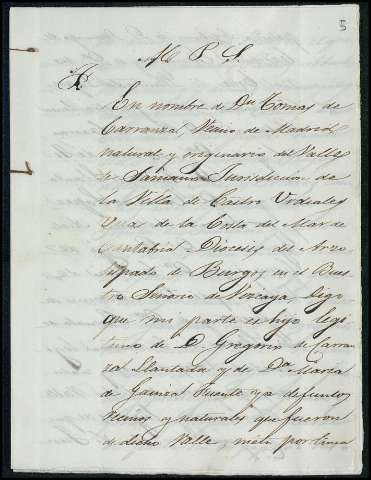 5
M. P. S.
En nombre de Dn Tomas de
Carranza, Vecino de Madrid,
natural y originario del Valle
de Sámano Jurisdiccion de
la Villa de Castro Urdiales
de la Costa del Mar de
Cantabria Diocesis del Arzo
vispado de Burgos en el Nues
tro Señorio de Vizcaya, Digo
que mi parte es hijo legi
timo de D. Gregorio de Carran
za Llantada y de Da Maria
de Fuente ya defuntos
Vecinos y naturales que fueron
de dicho Valle, nieto por linea